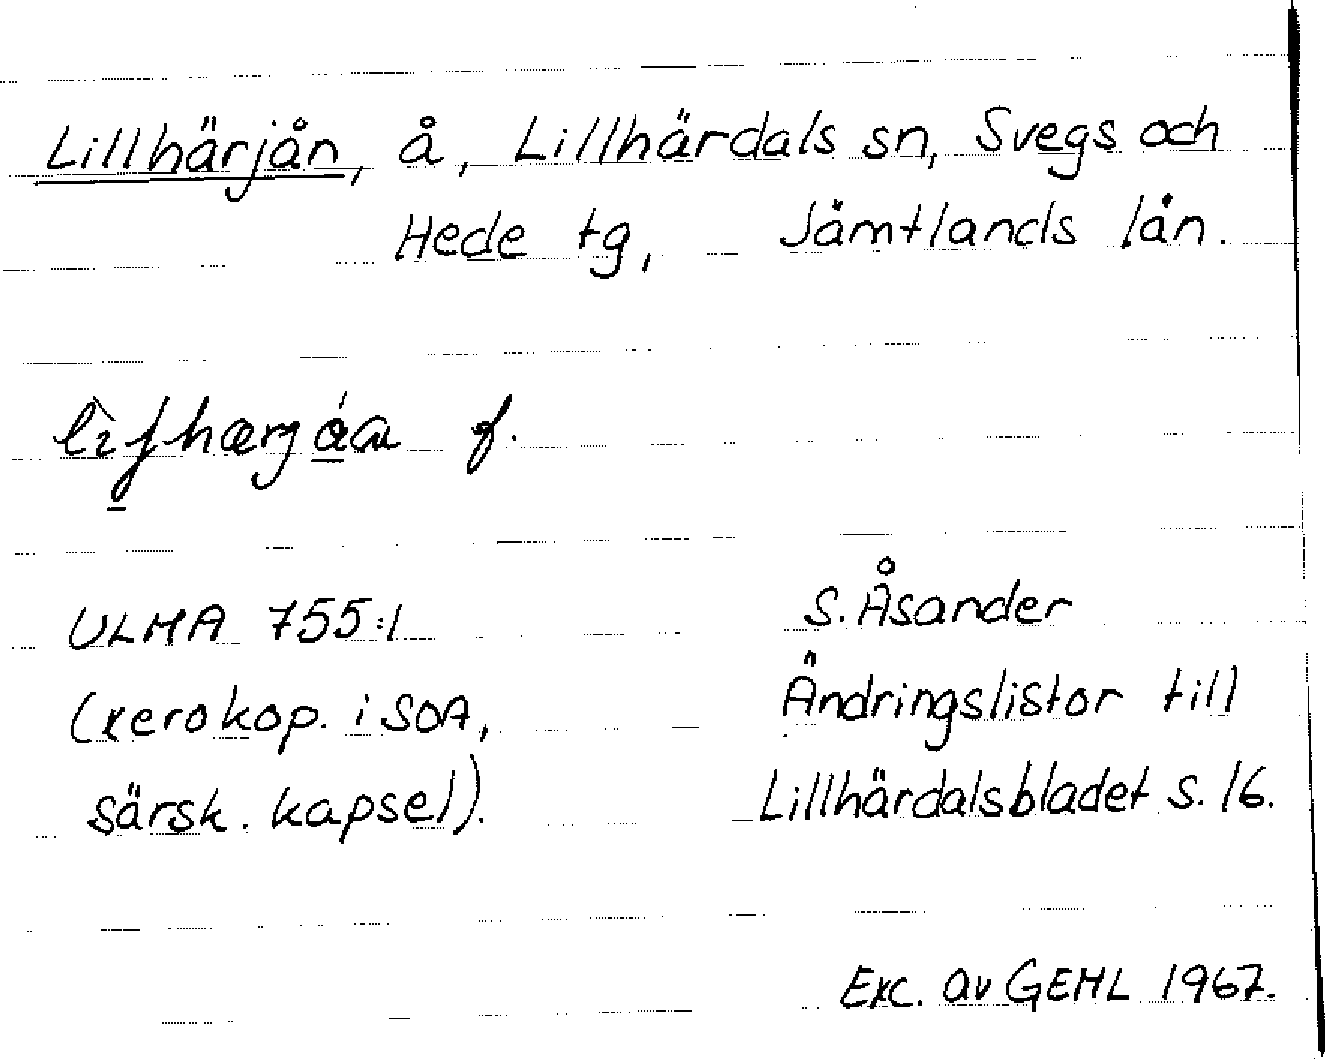 Lillhärjån, å, Lillhärdals sn, Svegs och
Hede tg, Jämtlands län.
f.
ULMA 755:1 S. Åsander
(xerokop. i SOA, Ändringslistor till
särsk. kapsel). Lillhärdalsbladet s. 16.
Exc. av GEHL 1967.